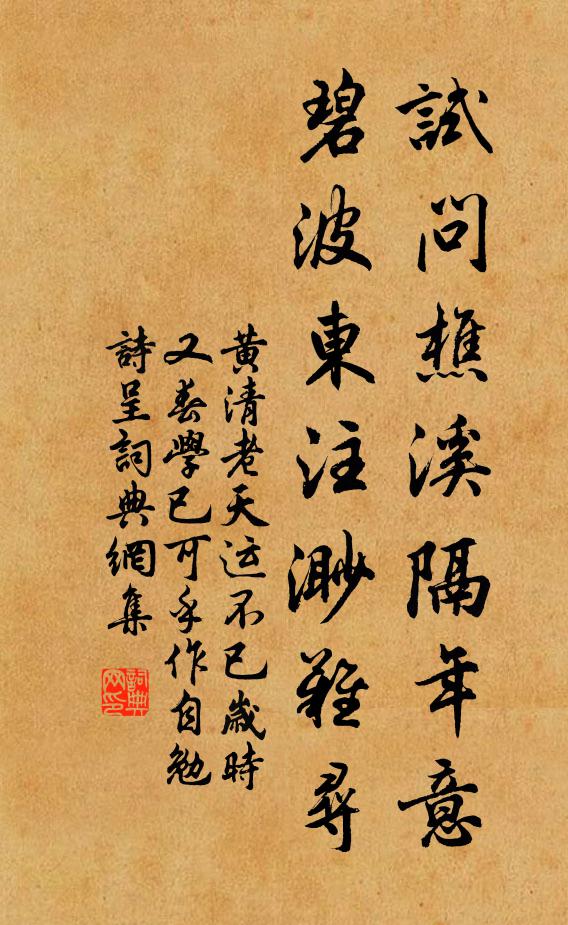 試問樵溪隔年意
碧波東注渺難尋
黃清老天运不已歲時
又春學已可乎作自勉
詩呈詞典網集
詞典網印